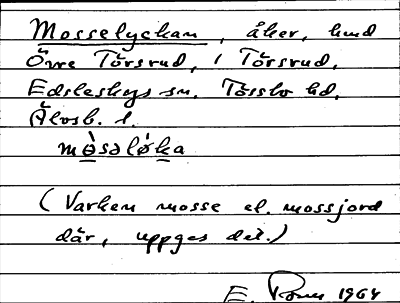 Mosselyckan, åker, hmd
Övre Törsrud, 1 Törsrud,
Edsleskogs sn. Tössbo hd.
Älvsb. l.
mòsəlý́ka
(Varken mosse el. mossjord
där, uppges det.)
E. 1964